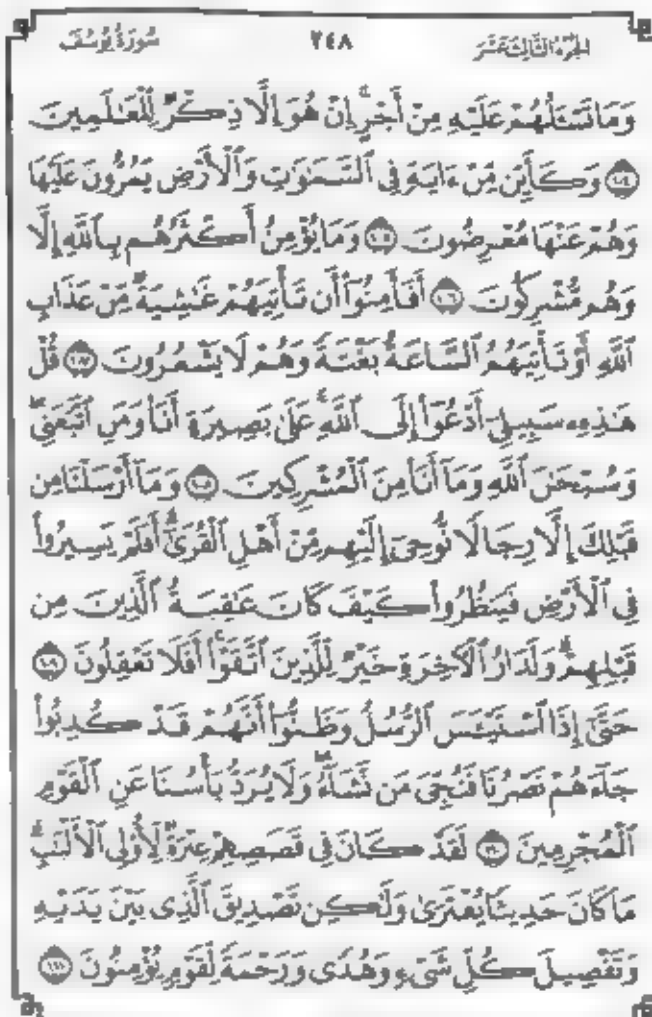 الجزء الثالث عشر ٢٤٨ سورة يوسف
وَمَا تَسْـَٔلُهُمْ عَلَيْهِ مِنْ أَجْرٍ ۚ إِنْ هُوَ إِلَّا ذِكْرٌ لِّلْعَـٰلَمِينَ
١٠٤ وَكَأَيِّن مِّنْ ءَايَةٍ فِى ٱلسَّمَـٰوَٰتِ وَٱلْأَرْضِ يَمُرُّونَ عَلَيْهَا
وَهُمْ عَنْهَا مُعْرِضُونَ ١٠٥ وَمَا يُؤْمِنُ أَكْثَرُهُم بِٱللَّهِ إِلَّا
وَهُم مُّشْرِكُونَ ١٠٦ أَفَأَمِنُوٓا۟ أَن تَأْتِيَهُمْ غَـٰشِيَةٌ مِّنْ عَذَابِ
ٱللَّهِ أَوْ تَأْتِيَهُمُ ٱلسَّاعَةُ بَغْتَةً وَهُمْ لَا يَشْعُرُونَ ١٠٧ قُلْ
هَـٰذِهِۦ سَبِيلِىٓ أَدْعُوٓا۟ إِلَى ٱللَّهِ ۚ عَلَىٰ بَصِيرَةٍ أَنَا۠ وَمَنِ ٱتَّبَعَنِى ۖ
وَسُبْحَـٰنَ ٱللَّهِ وَمَآ أَنَا۠ مِنَ ٱلْمُشْرِكِينَ ١٠٨ وَمَآ أَرْسَلْنَا مِن
قَبْلِكَ إِلَّا رِجَالًا نُّوحِىٓ إِلَيْهِم مِّنْ أَهْلِ ٱلْقُرَىٰٓ ۗ أَفَلَمْ يَسِيرُوا۟
فِى ٱلْأَرْضِ فَيَنظُرُوا۟ كَيْفَ كَانَ عَـٰقِبَةُ ٱلَّذِينَ مِن
قَبْلِهِمْ ۗ وَلَدَارُ ٱلْـَٔاخِرَةِ خَيْرٌ لِّلَّذِينَ ٱتَّقَوْا۟ ۗ أَفَلَا تَعْقِلُونَ ١٠٩
حَتَّىٰٓ إِذَا ٱسْتَيْـَٔسَ ٱلرُّسُلُ وَظَنُّوٓا۟ أَنَّهُمْ قَدْ كُذِبُوا۟
جَآءَهُمْ نَصْرُنَا فَنُجِّىَ مَن نَّشَآءُ ۖ وَلَا يُرَدُّ بَأْسُنَا عَنِ ٱلْقَوْمِ
ٱلْمُجْرِمِينَ ١١٠ لَقَدْ كَانَ فِى قَصَصِهِمْ عِبْرَةٌ لِّأُو۟لِى ٱلْأَلْبَـٰبِ ۗ
مَا كَانَ حَدِيثًا يُفْتَرَىٰ وَلَـٰكِن تَصْدِيقَ ٱلَّذِى بَيْنَ يَدَيْهِ
وَتَفْصِيلَ كُلِّ شَىْءٍ وَهُدًى وَرَحْمَةً لِّقَوْمٍ يُؤْمِنُونَ ١١١